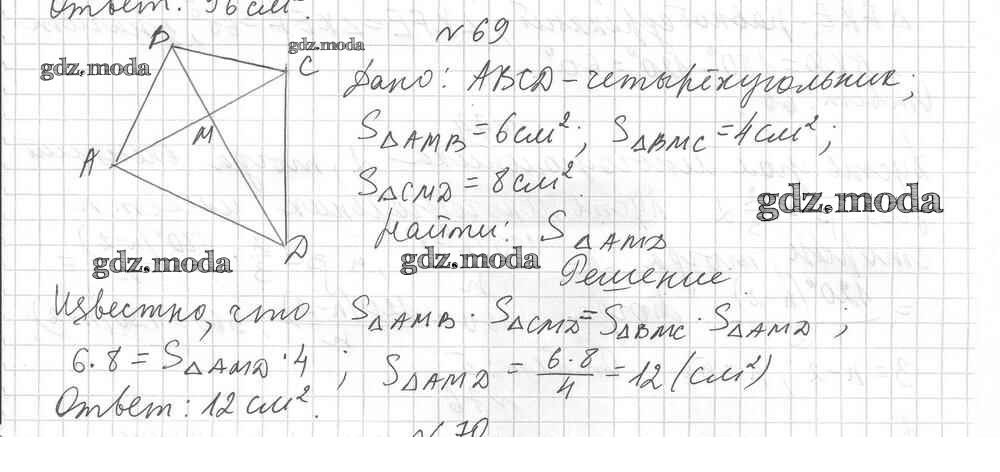 Ответ: 56 см².
№ 69
B
C
A
M
D
gdz.moda
gdz.moda
Дано: ABCD – четырёхугольник;
S△AMB = 6 см²; S△BMC = 4 см²;
S△CMD = 8 см².
gdz.moda
Найти: S△AMD
gdz.moda
gdz.moda
Решение
Известно, что S△AMB · S△CMD = S△BMC · S△AMD;
6·8 = S△AMD · 4; S△AMD = 6·8/4 = 12 (см²)
Ответ: 12 см².
№ 70